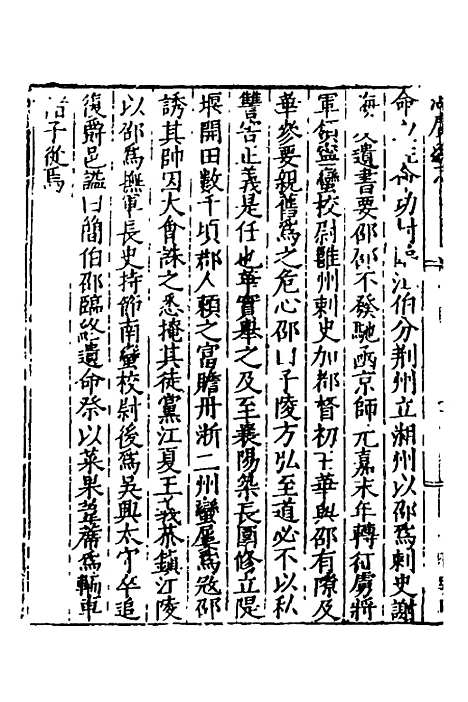 命功臨江伯分荆州立湘州以邵爲刺史謝
遺書要邵邵不發馳函京師元嘉末年轉征虜將
軍領寧蠻校尉雝州刺史加都督初王華與邵有隙及
華參要親舊爲之危心邵曰子陵方弘至道必不以私
讐害正義是任也華實舉之及至襄陽築長圍修立隄
堰開田數千頃郡人頼之富贍丹浙二州蠻屢爲冦邵
誘其帥因大會誅之悉掩其徒黨江夏王義恭鎮江陵
以邵爲撫軍長史持節南蠻校尉後爲吳興太守卒追
復爵邑謚曰簡伯邵臨終遺命祭以菜果葦蓆爲轜車
諸子從焉